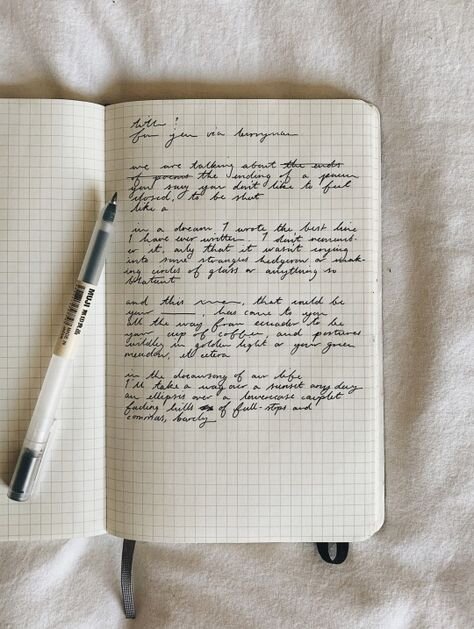 title ?
for you via berryman
we are talking about the ends
of poems the ending of a poem
you say you don't like to feel
closed, to be shut
like a
in a dream I wrote the best line
I have ever written. I don't remember
it, only that it wasn't
into some strangers hedgerow or making
circles of glass or anything so
blatant
and this, that could be
your has come to you
all the way from ecuador to be
your cup of coffee, and pastures
in golden light or your green
meadow, et cetera
in the of our life
I'll take a over a sunset any day
an ellipsis over a lowercase couplet
fading hills of full-stops and
commas, barely
MUJI 無印良品